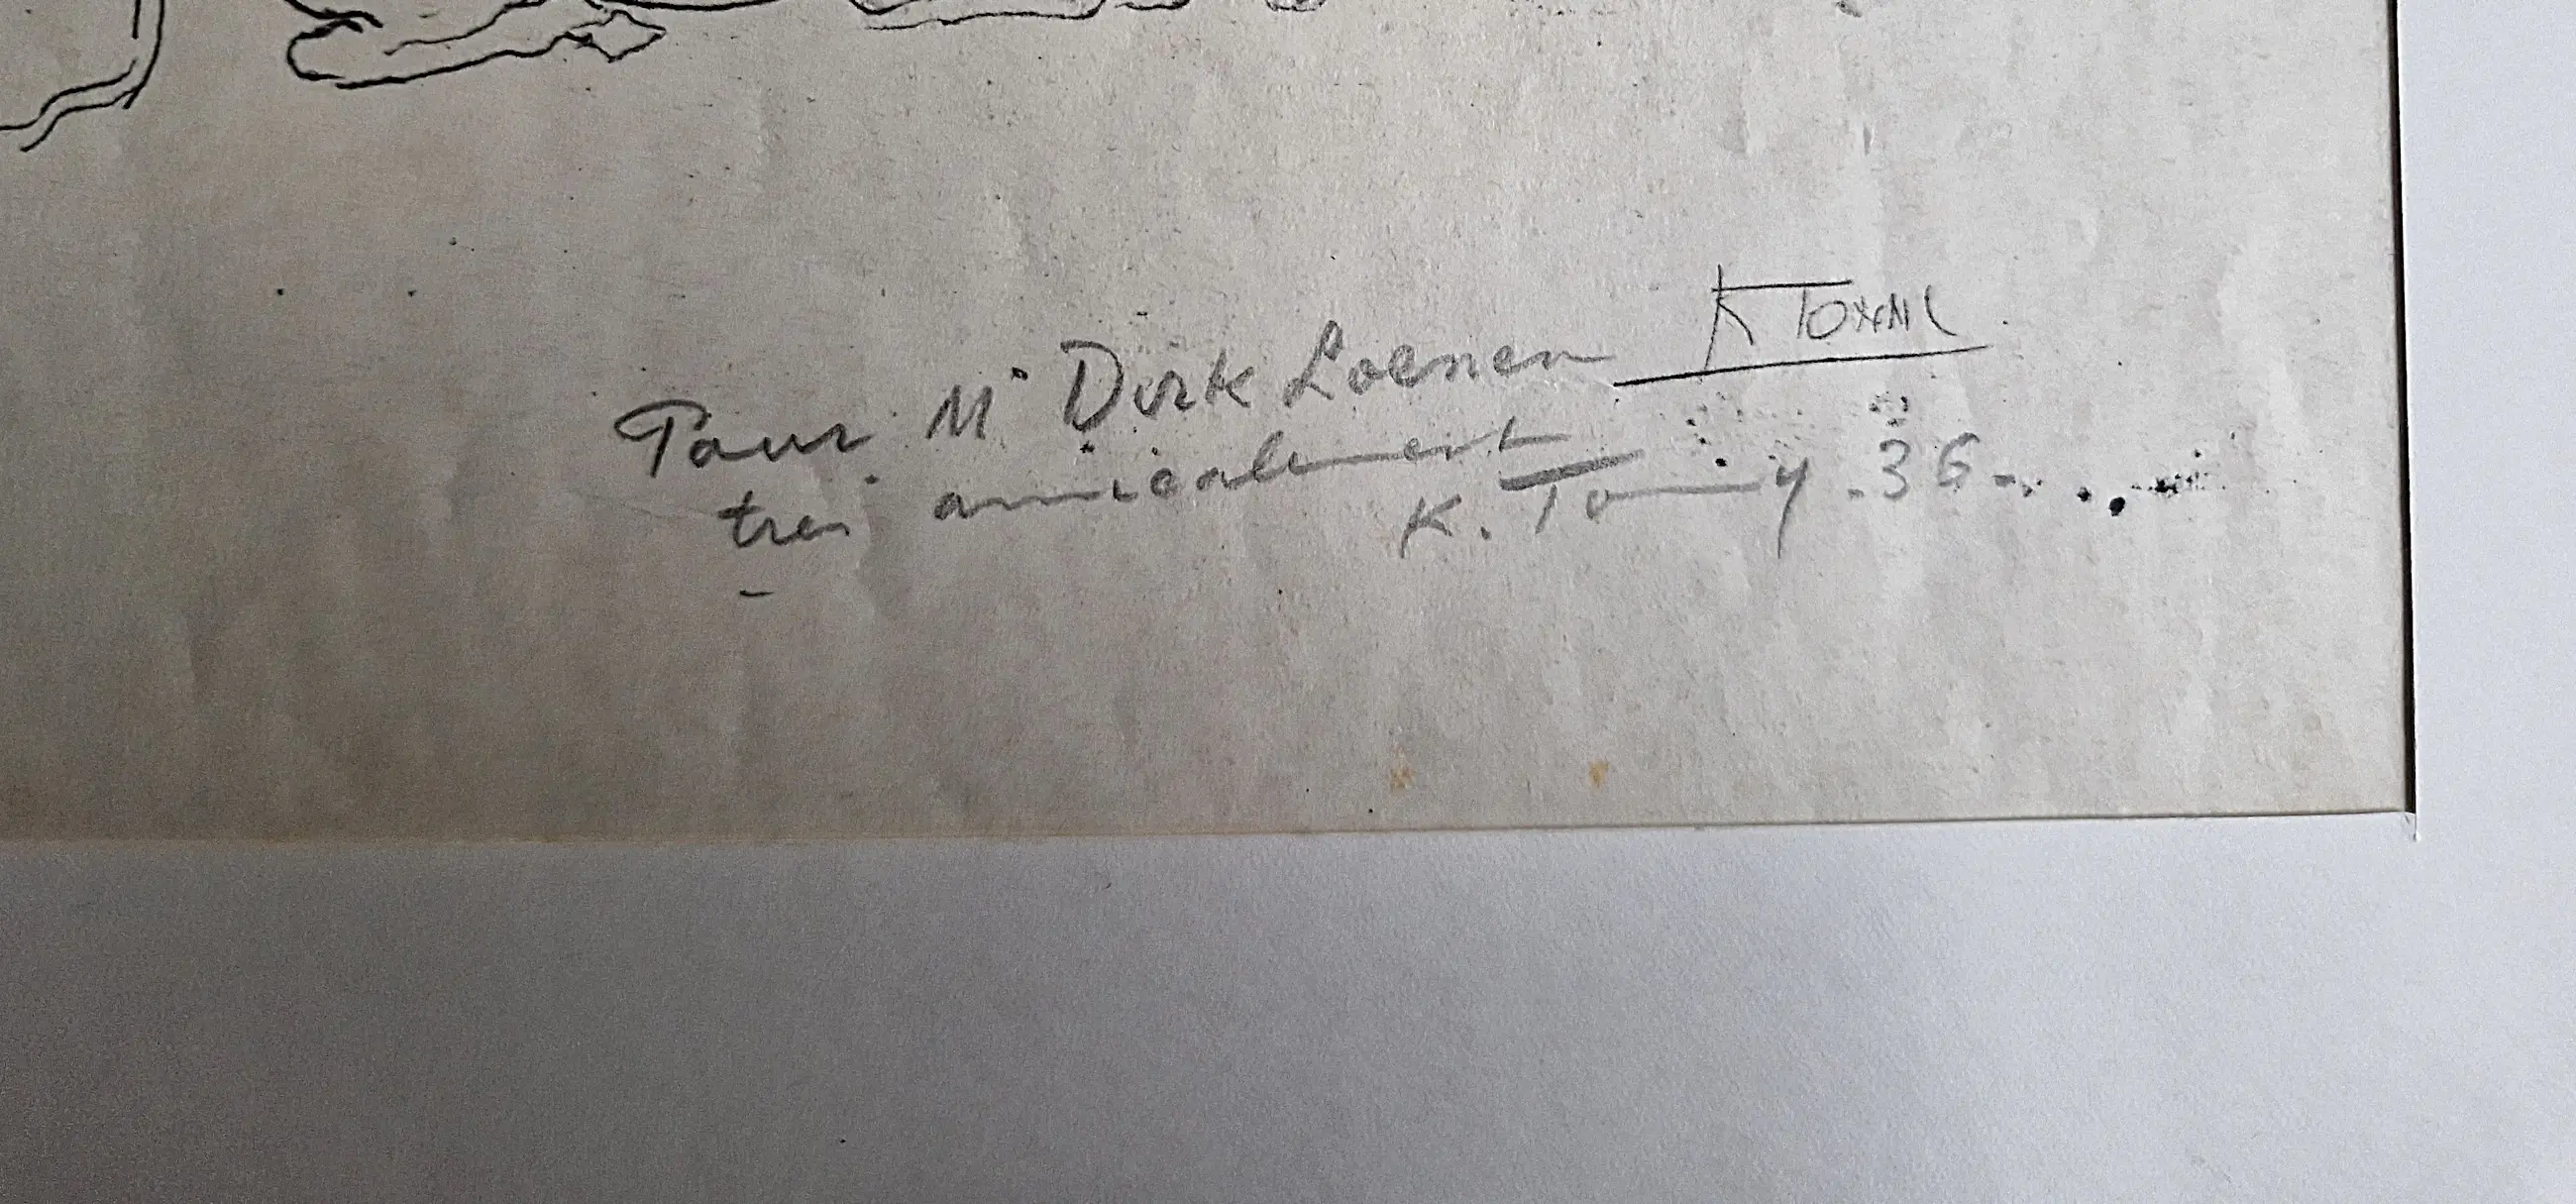 K Tommy
Pour Mr Dirk Loenen
très amicalement
K. Tommy .36-